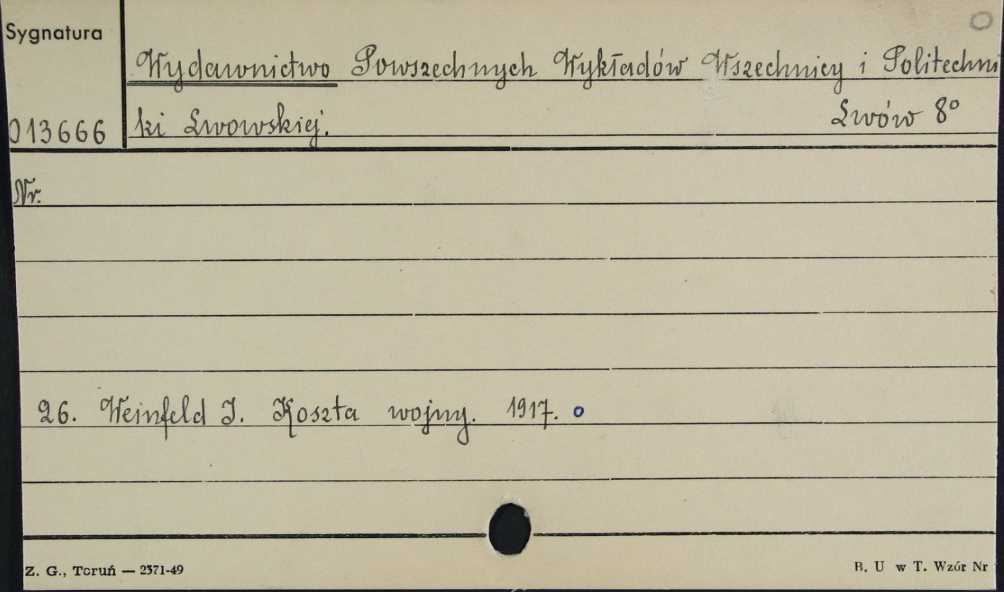 Sygnatura
Wydawnictwo Powszechnych Wykładów Wszechnicy i Politechni
013666 ki Lwowskiej. Lwów 8°
Nr.
26. Weinfeld I. Koszta wojny. 1917. o
Z. G., Toruń — 2371-49 B. U w T. Wzór Nr